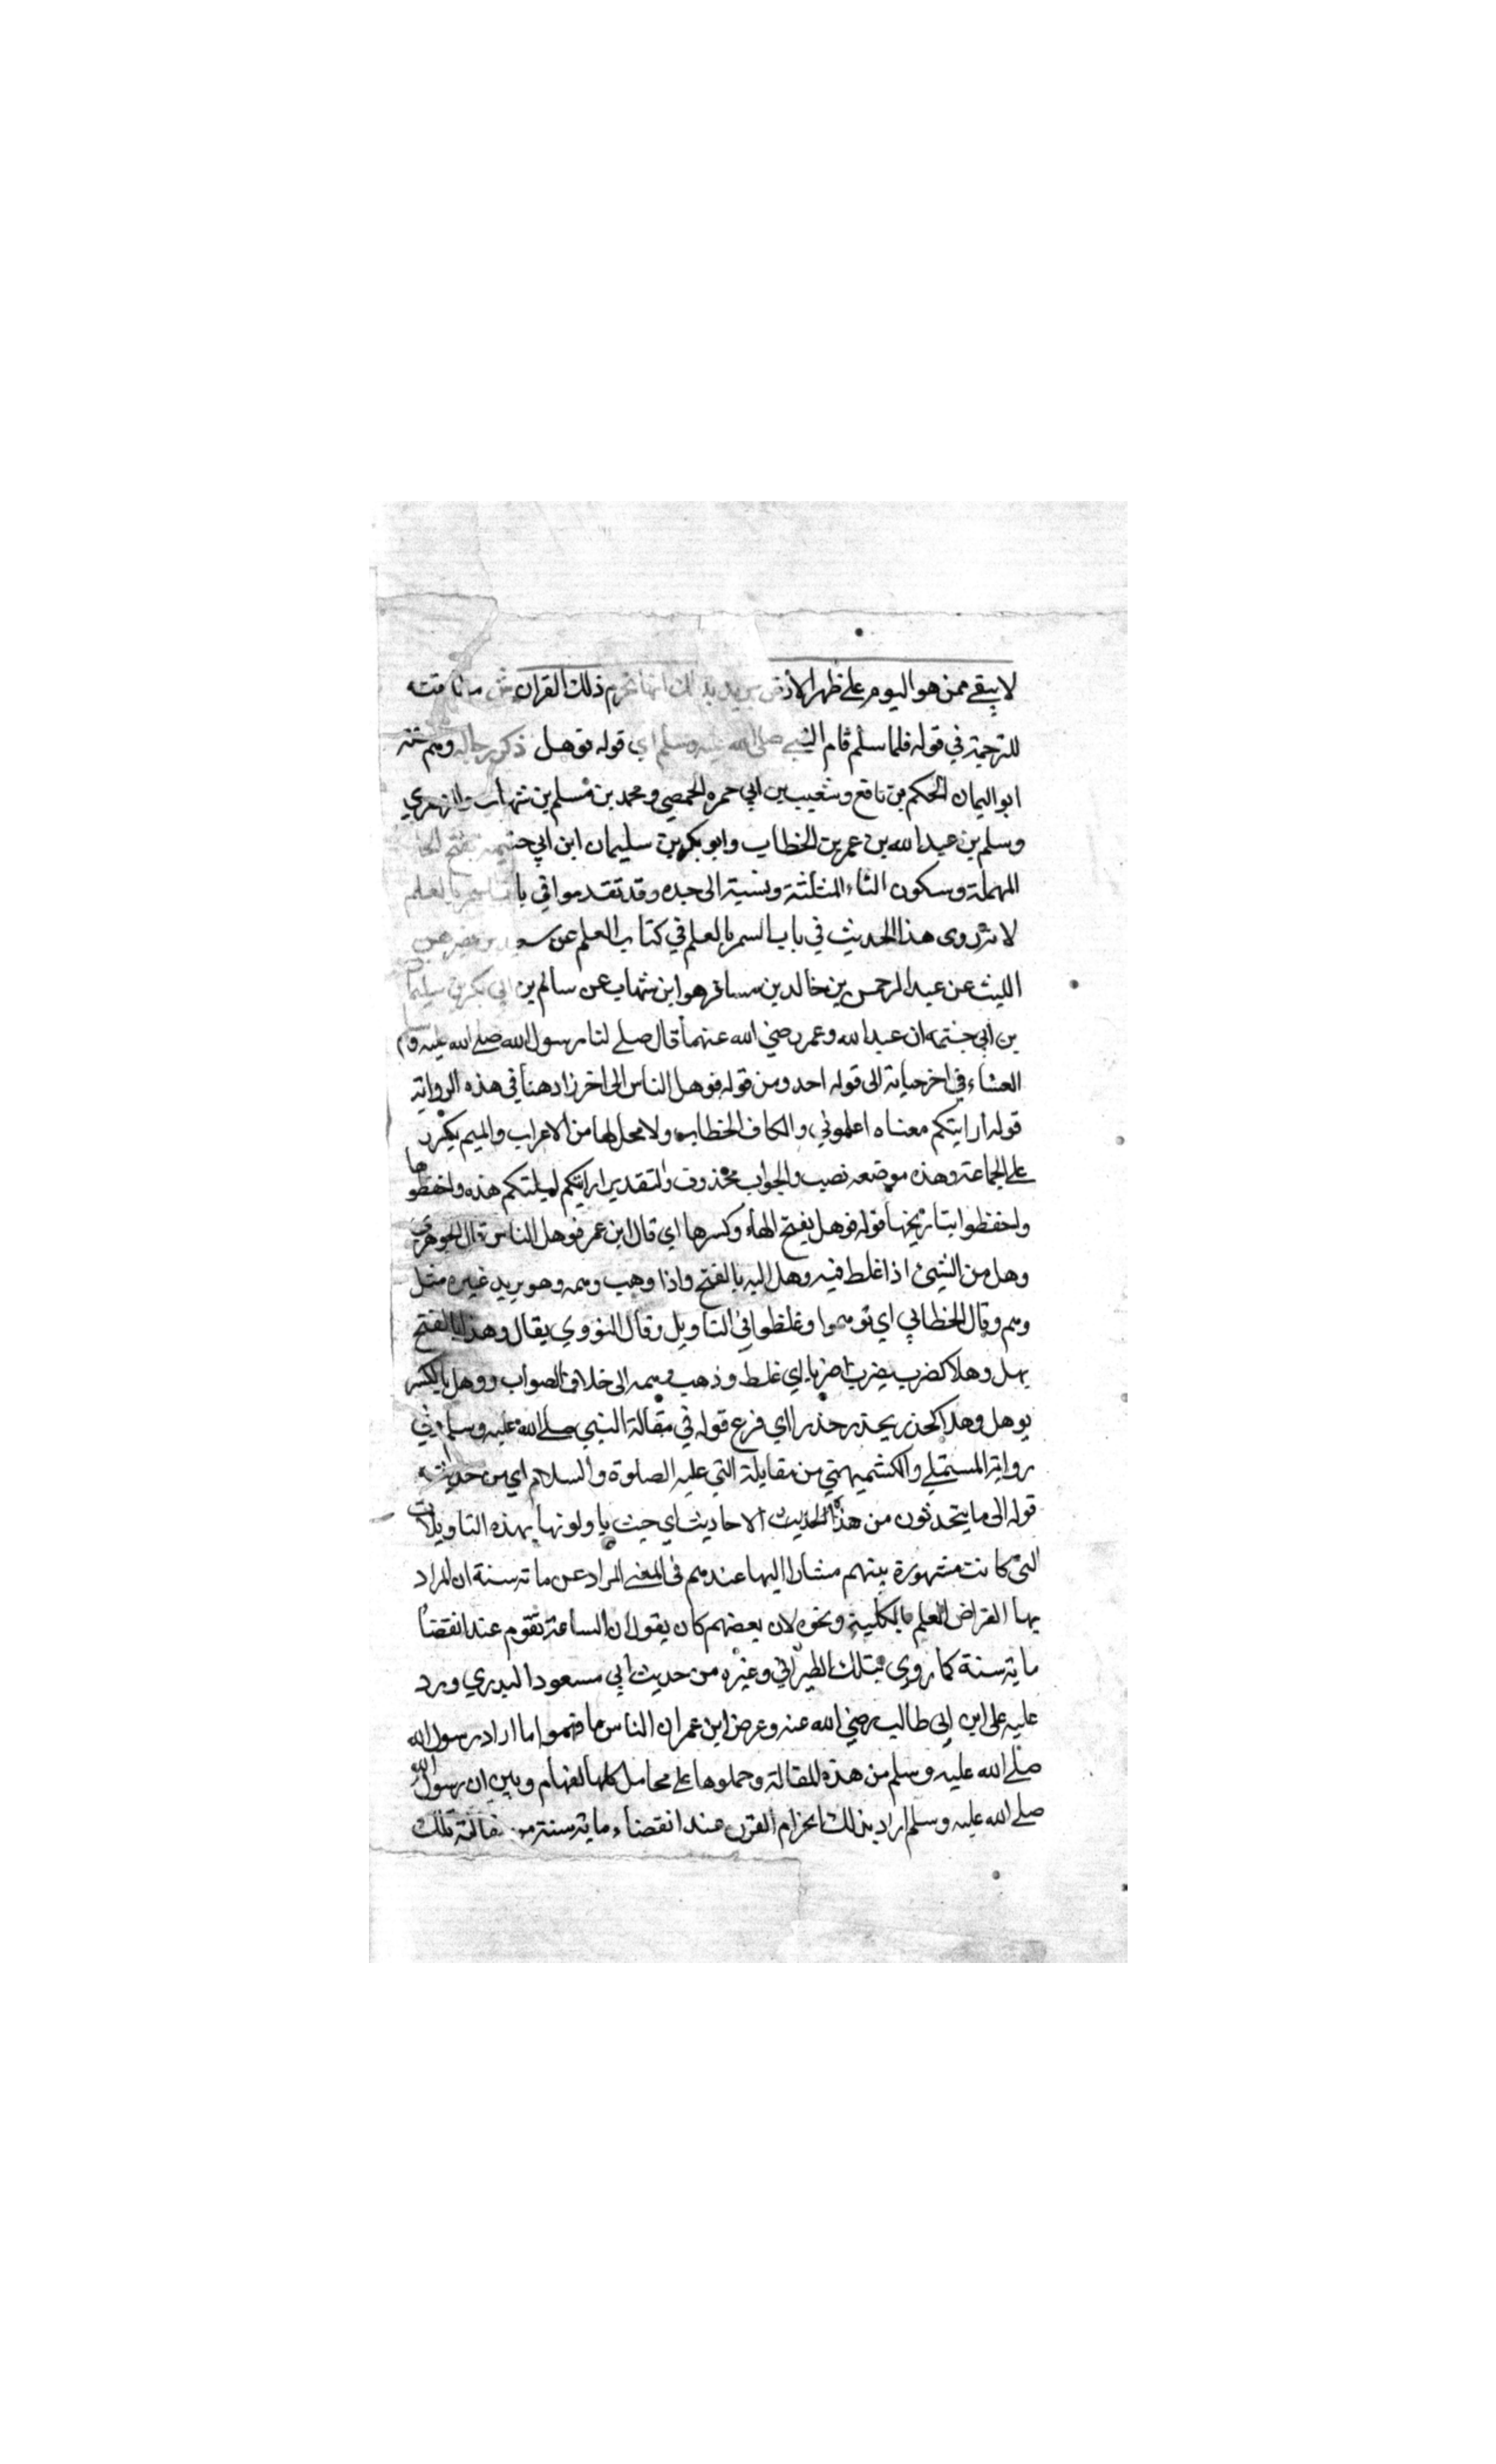 لا يبقى ممن هو اليوم على ظهر الأرض يريد بذلك انها تخرم ذلك القران ش مطابقته
للترجمة في قوله فلما سلم قام النبي صلى الله عليه وسلم اي قوله فوهل ذكر رجاله وهم ستة
ابو اليمان الحكم بن نافع وشعيب بن ابي حمزه الحمصي ومحمد بن مسلم بن شهاب الزهري
وسلم بن عبد الله بن عمر بن الخطاب وابو بكر بن سليمان ابن ابي حثيمة بفتح الحا
المهملة وسكون الثاء المثلثة ونسبة الى جده وقد تقدموا في باب السمر بالعلم
لا نه روى هذا الحديث في باب السمر بالعلم في كتاب العلم عن سعيد بن عفير عن
الليث عن عبد الرحمن بن خالد بن مسافر هو ابن شهاب عن سالم بن ابي بكر بن سليما
بن ابي حثمه ان عبد الله وعمر رضي الله عنهما قال صلى لنا رسول الله صلى الله عليه وسلم
العشاء في اخر حياته الى قوله احد ومن قوله فوهل الناس الى اخر زاد هنا في هذه الرواية
قوله ارايتكم معناه اعلموني والكاف الخطاب ولا محل لها من الاعراب والميم يكرر
على الجماعة وهذه موضعه نصب والجواب محذوف والتقدير ارايتكم ليلتكم هذه واحفظوها
واحفظوا بتاريخها قوله فوهل بفتح الهاء وكسرها اي قال ابن عمر فوهل الناس قال الجوهري
وهل من الشيئ اذا غلط فيه وهل اليه بالفتح واذا وهب وهمه وهو يريد غيره مثل
وهم وقال الخطابي اي توهموا وغلطوا في التاويل وقال النووي يقال وهذا بالفتح
يهل وهلا كضرب يضرب ضربا اي غلط وذهب وهمه الى خلاف الصواب ووهل بالكسر
يوهل وهلا كحذر يحذر حذرا اي فزع قوله في مقالة النبي صلى الله عليه وسلم وفي
رواية المستملي والكشميهني من مقايلة النبي عليه الصلوة والسلام اي من حديثه
قوله الى ما يتحدثون من هذا الحديث الاحاديث اي حيث ياولونها بهذه التاويلات
التي كانت مشهورة بينهم مشارا اليها عندهم في المعنى المراد عن ماته سنة ان المراد
بها القراض العلم بالكلية ونحوه لان بعضهم كان يقول ان الساعة تقوم عند انقضا
ماية سنة كما روى بتلك الطبراني وغيره من حديث ابي مسعود البدري ورد
عليه على ابن ابي طالب رضي الله عنه وعرض ابن عمر ان الناس ما فهموا ما اراد رسول الله
صلى الله عليه وسلم من هذه المقالة وحملوها على محامل كلها الفهام وبين ان رسول الله
صلى الله عليه وسلم اراد بذلك انخرام القرن عند انقضاء ماية سنة من مقالته تلك